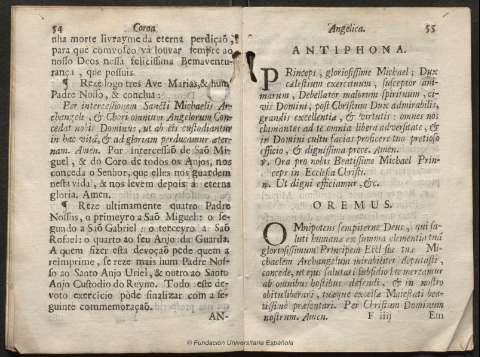 54 Coroa
nha morte livrayme da eterna perdiçaõ,
para que comvosco vá louvar sempre ao
nosso Deos nessa felicissima Bemaventu-
rança, que possuis.
¶ Reze logo tres Ave Marias, & hum
Padre Nosso, & conclua:
Per intercessionem Sancti Michaelis Ar-
changeli, & Chori omnium Angelorum Con-
cedat nobis Dominus, ut ab eis custodiantur
in hac vita, & ad gloriam perducamur æter-
nam. Amen. Por intercessaõ de Saõ Mi-
guel, & do Coro de todos os Anjos, nos
conceda o Senhor, que elles nos guardem
nesta vida, & nos levem depois á eterna
gloria. Amen.
¶ Reze ultimamente quatro Padre
Nossos, o primeyro a Saõ Miguel: o se-
gundo a Saõ Gabriel: o terceyro a Saõ
Rafael: o quarto ao seu Anjo da Guarda.
A quem fizer esta devoçaõ pede quem a
reimprime, se reze mais hum Padre Nos-
so ao Santo Anjo Uriel, & outro ao Santo
Anjo Custodio do Reyno. Todo este de-
voto exercicio póde finalizar com a se-
guinte commemoraçaõ.
AN-
Angelica. 55
ANTIPHONA.
PRinceps, gloriosissime Michael; Dux
cælestium exercituum, susceptor ani-
marum, Debellator malorum spirituum, ci-
vis Domini, post Christum Dux admirabilis,
grandis excellentia, & virtutis: omnes nos
clamantes ad te omnia libera adversitate, &
in Domini cultu facias proficere tuo pretioso
officio, & dignissima prece. Amen.
v. Ora pro nobis Beatissime Michael Prin-
ceps in Ecclesia Christi.
R. Ut digni efficiamur, &c.
OREMUS.
OMnipotens sempiterne Deus, qui sa-
luti humanæ ex summa clementia tua
gloriosissimum Principem Ecclesiæ tuæ Mi-
chaelem Archangelum mirabiliter deputasti,
concede, ut ejus salutari subsidio hic mereamur
ab omnibus hostibus defendi, & in nostro
obitu liberari, tuæque excelsæ Majestati bea-
tissime præsentari. Per Christum Dominum
nostrum. Amen. F iiij Em
© Fundación Universitaria Española